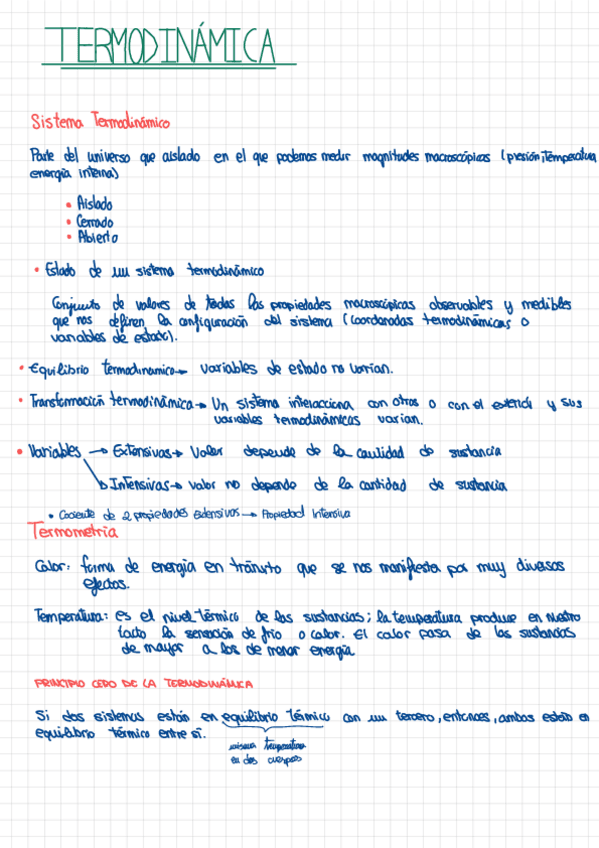 TERMODINÁMICA
Sistema Termodinámico
Parte del universo que aislado en el que podemos medir magnitudes macroscópicas (presión, Temperatura
energía interna)
• Aislado
• Cerrado
• Abierto
• Estado de un sistema termodinámico
Conjunto de valores de todas las propiedades macroscópicas observables y medibles
que nos definen la configuración del sistema (coordenadas termodinámicas o
variables de estado).
• Equilibrio termodinamico → variables de estado no varían.
• Transformación termodinámica → Un sistema interacciona con otros o con el exterior y sus
variables termodinámicas varian.
• Variables → Extensivas → Valor depende de la cantidad de sustancia
→ Intensivas → valor no depende de la cantidad de sustancia
• Cociente de 2 propiedades Extensivas → Propiedad Intensiva
Termometría
Calor: forma de energía en tránsito que se nos manifiesta por muy diversos
efectos.
Temperatura: es el nivel térmico de las sustancias; la temperatura produce en nuestro
tacto la sensación de frío o calor. El calor pasa de las sustancias
de mayor a los de menor energía
PRINCIPIO CERO DE LA TERMODINÁMICA
Si dos sistemas están en equilibrio térmico con un tercero, entonces, ambos están en
equilibrio térmico entre sí.
misma temperatura
en dos cuerpos